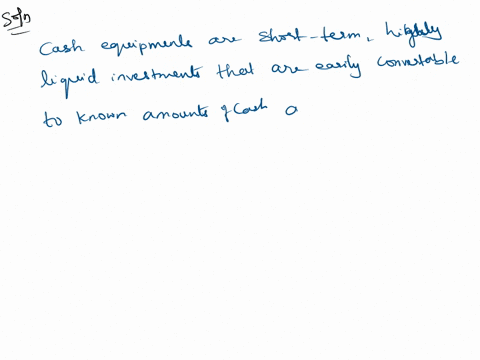 Soln
Cash equipments are short-term, highly
liquid investments that are easily convertable
to known amounts of cash a